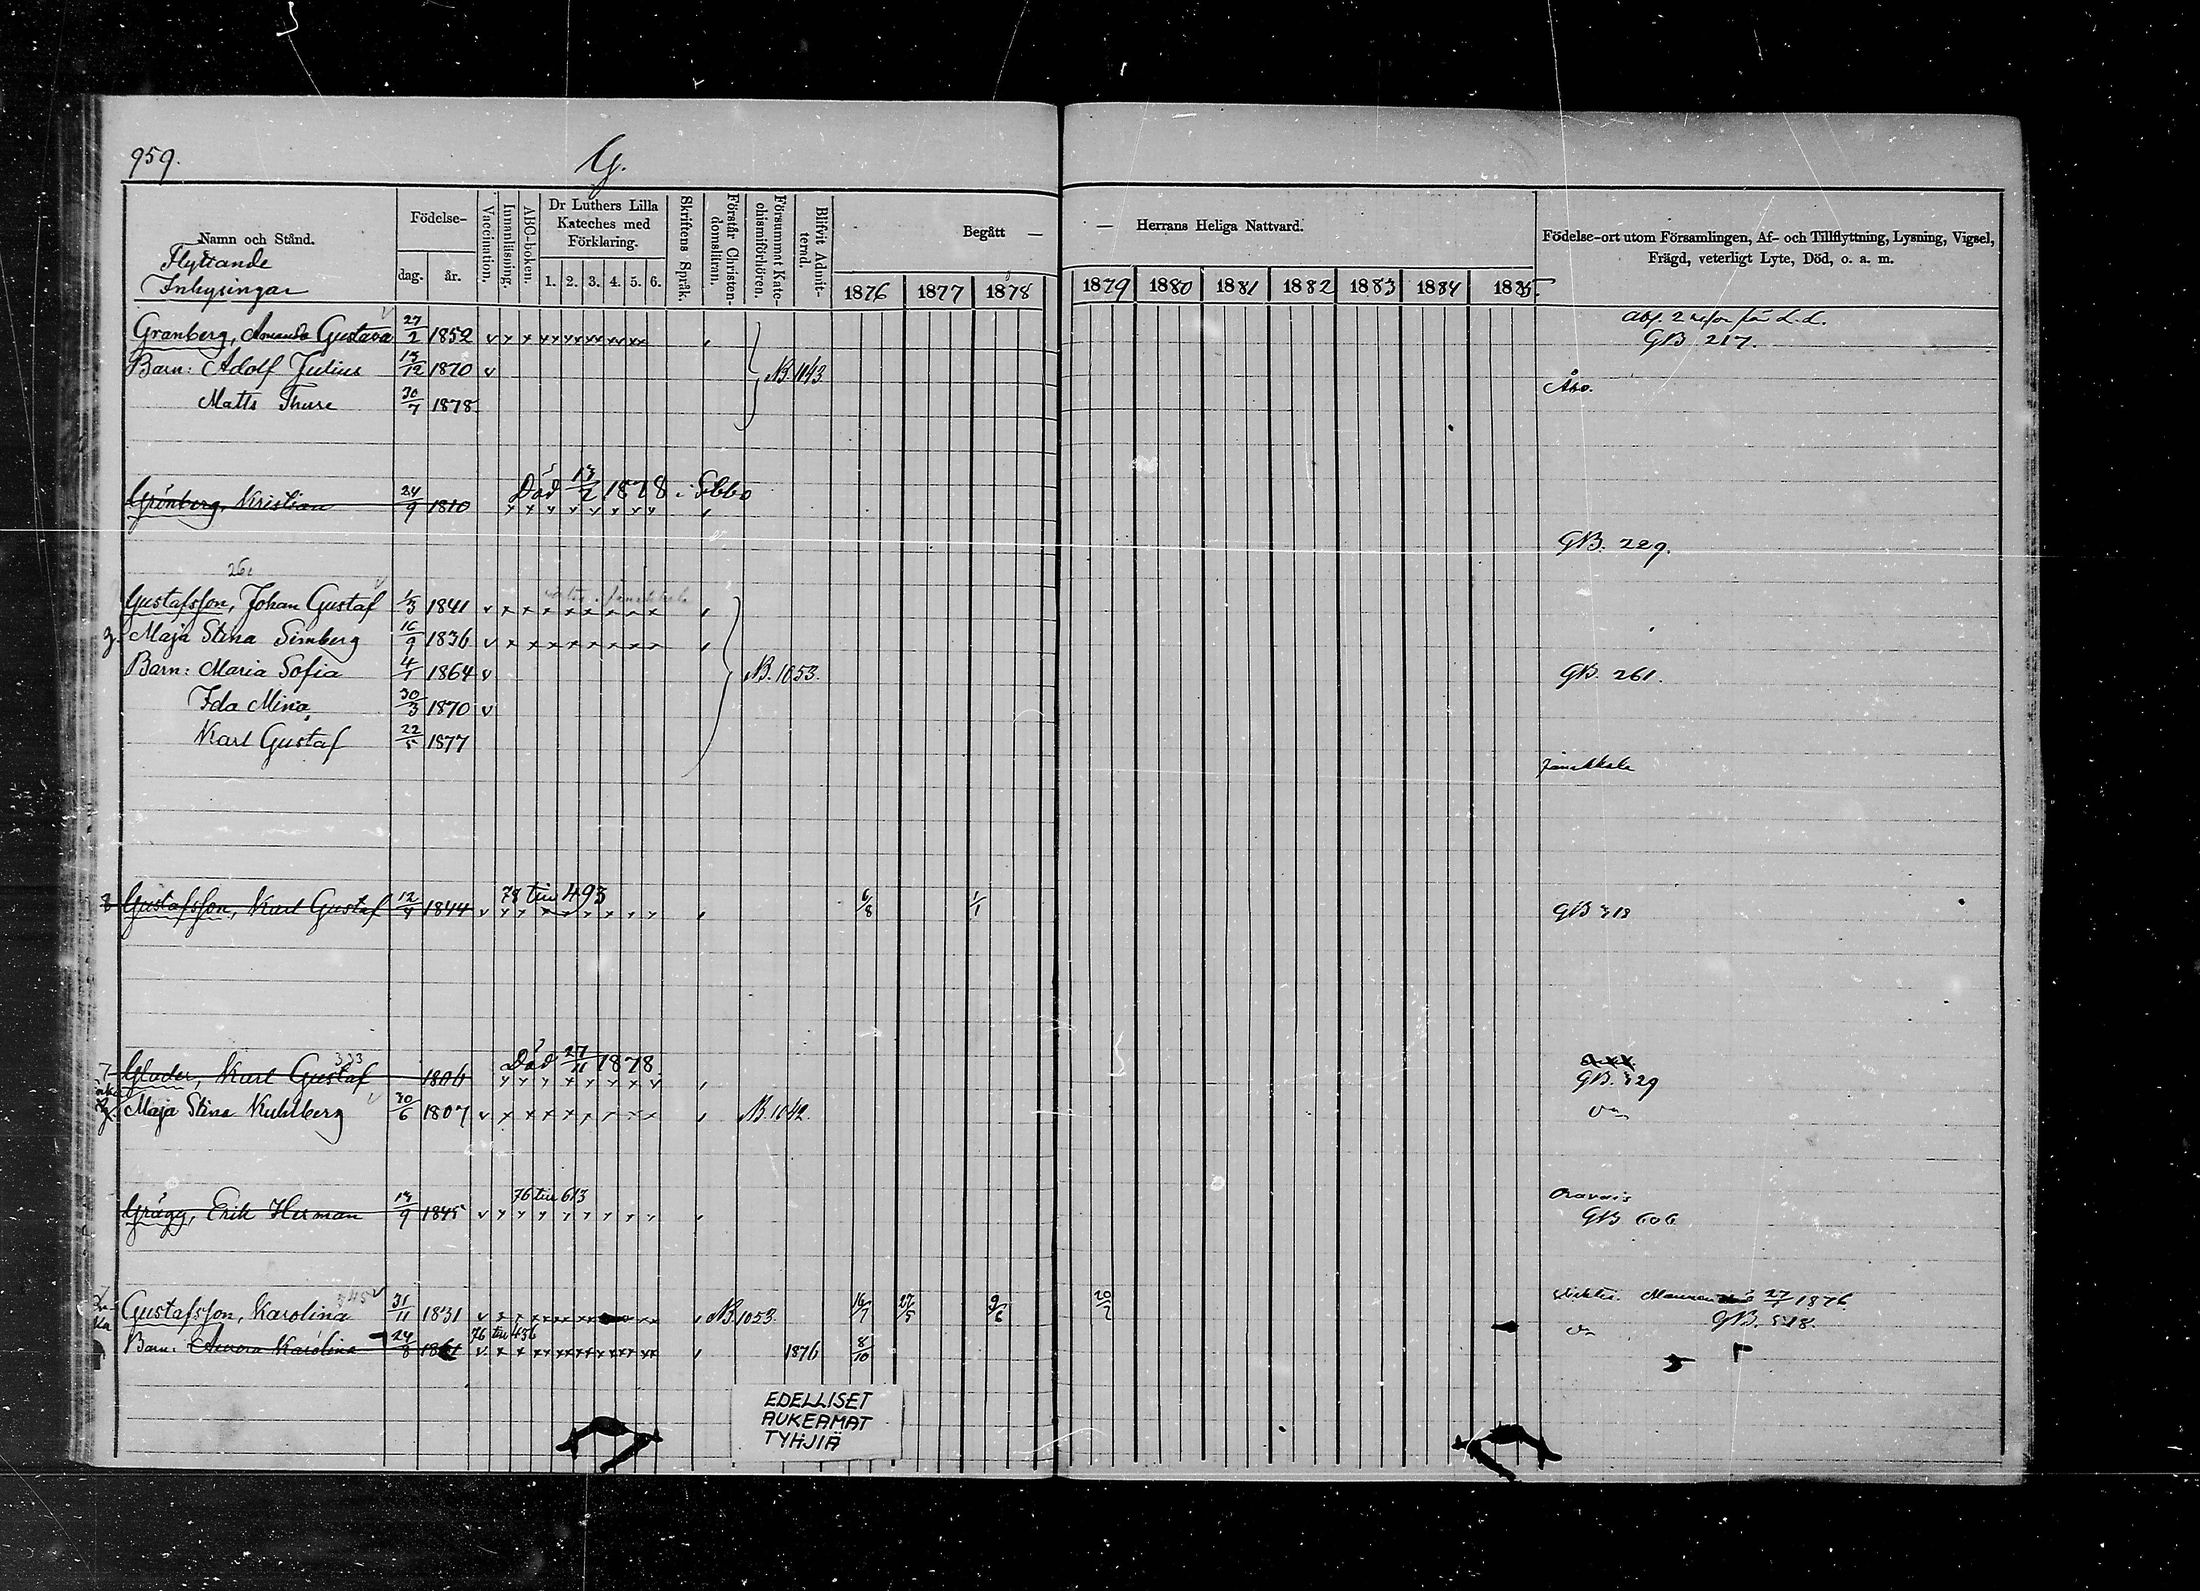 959.
G.
Namn och Stånd.
Flyttande
Inhysingar
Födelse-
dag.
år.
Vaccination.
Innanläsning.
ABC-boken.
Dr Luthers Lilla
Kateches med
Förklaring.
1. 2. 3. 4. 5. 6.
Skriftens Språk.
Förstår Christen-
domsläran.
Försummat Kate-
chismiförhören.
Blifvit Admit-
terad.
Begått —
1876 1877 1878
— Herrans Heliga Nattvard.
1879 1880 1881 1882 1883 1884 1885
Födelse-ort utom Församlingen, Af- och Tillflyttning, Lysning, Vigsel,
Frägd, veterligt Lyte, Död, o. a. m.
Granberg, Amanda Gustava 27/2 1852
GB 217.
Barn: Adolf Julius 1870 NB. 1043
Åbo.
Matts Thure 30/7 1878
Död 13/2 1878 i Sibbo
Grönberg, Kristian 24/9 1810
GB. 229.
261
Gustafsson, Johan Gustaf 1/3 1841
Maja Stina Simberg 16/9 1836
Barn: Maria Sofia 4/1 1864 NB. 1053.
GB. 261.
Ida Mina 30/3 1870
Karl Gustaf 22/5 1877
Janakkala
78 till 493
Gustafsson, Karl Gustaf 12/4 1844 6/8 1/1
GB 318
333
Död 27/11 1878.
Glader, Karl Gustaf 1806
GB. 329
Maja Stina Kuhlberg 30/6 1807 NB. 1042.
76 till 613
Oravais
Grägg, Erik Herman 1845
GB 606
Gustafsson, Karolina 31/11 1831 NB. 1053. 16/7 27/5 9/6 20/7
27/1 1876
GB. 518.
76 till 436
Barn: Aurora Karolina 24/8 1861 1876 8/10
EDELLISET
AUKEAMAT
TYHJIÄ